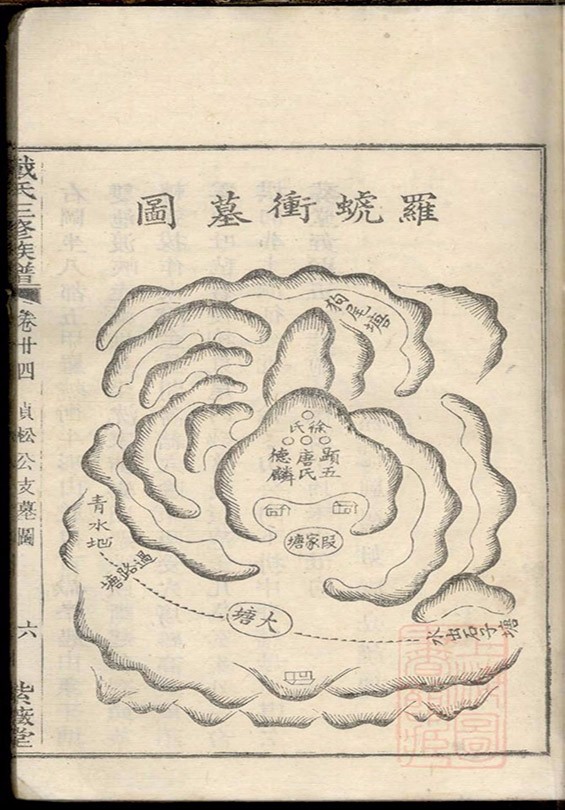 羅衝墓圖
狗尾塘
徐氏
顯五
唐氏
德麟
段家塘
青水地
過路塘
大塘
塘子石出水
戴氏三修族譜
卷廿四
貞松公支墓圖
六
紫薇堂